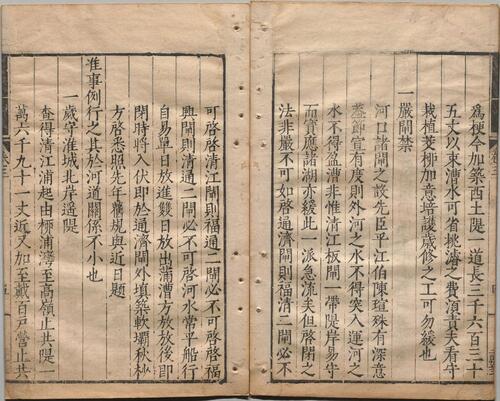 爲梗今加築西土隄一道長三千六百三十
五丈以束漕水可省挑濬之費須責夫看守
栽植茭柳加意培護歲修之工可勿緩也
一嚴閘禁
河口諸閘之設先臣平江伯陳瑄殊有深意
葢節宣有度則外河之水不得突入運河之
水不得盈漕非惟清江板閘一帶隄岸易守
而寶應諸湖亦緩此一派急流矣但啓閉之
法非嚴不可如啓通濟閘則福清二閘必不
可啓啓清江閘則福通二閘必不可啓啓福
興閘則清通二閘必不可啓河水常平船行
自易單日放進雙日放出滿漕方放放後即
閉時將入伏即於通濟閘外填築軟壩秋杪
方啓悉照先年舊規與近日題
准事例行之其於河道關係不小也
一歲守淮城北岸遙隄
查得清江浦起由栁浦灣至高嶺止共隄一
萬六千九十一丈近又加至戴百戶營止共
卷三
五